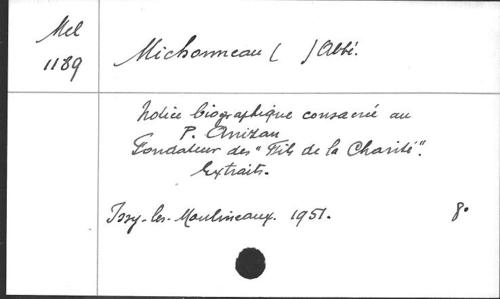 Mel
1189
Michonneau ( ) Abbé.
Notice biographique consacrée au
P. Anizan
Fondateur des "Fils de la Charité".
Extraits.
Issy-les-Moulineaux. 1951. 8°